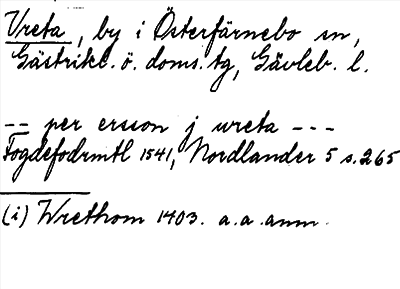 Vreta, by i Österfärnebo sn,
Gästrikl. ö. doms. tg, Gävleb. l.
-- per ersson j wreta ---
Fogdefodrmtl 1541, Nordlander 5 s. 265
(i) Wrethom 1403. a.a. anm.